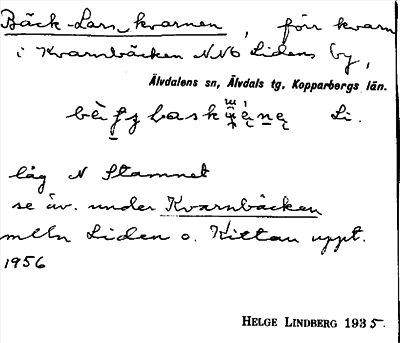 Bäck-Lars-kvarnen, förr kvarn
i Kvarnbäcken NNO Lidens by,
Älvdalens sn, Älvdals tg, Kopparbergs län.
Li.
låg N Stamnet
se äv. under Kvarnbäcken
mlln Liden o. Kittan uppt.
1956
HELGE LINDBERG 1935.